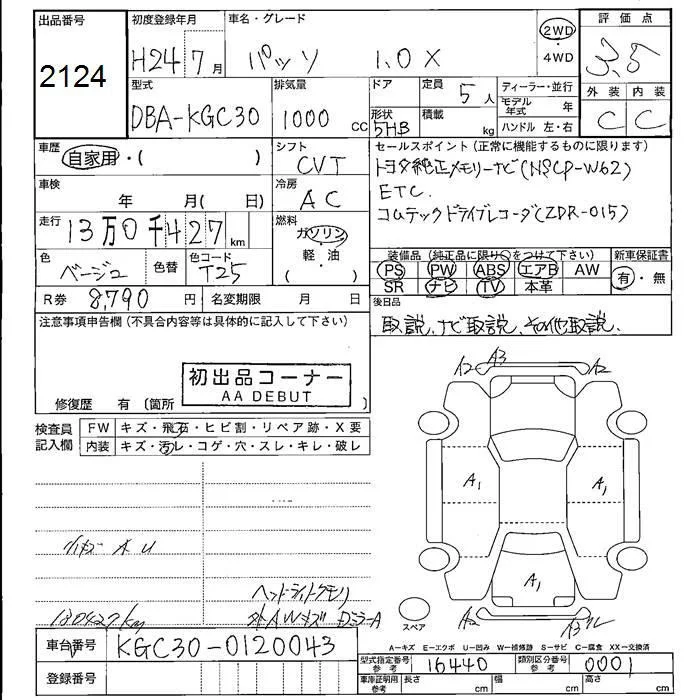 出品番号 初度登録年月 車名・グレード 評価点
2124 H24 7月 パッソ 1.0X 2WD・4WD 3.5
型式 排気量 ドア 定員 5人 ディーラー・並行 外装 内装
DBA-KGC30 1000 CC 形状 5HB 積載 kg モデル年式 年 ハンドル 左・右 C C
車歴 自家用・( ) シフト CVT セールスポイント(正常に機能するものに限ります)
車検 年 月( 日) 冷房 AC トヨタ純正メモリーナビ(NSCP-W62)
ETC.
走行 13万0千427km 燃料 ガソリン・軽・油 ( ) コムテックドライブレコーダ(ZDR-015)
色 ベージュ 色替 色コード T25 装備品(純正品に限り○をつけて下さい) 新車保証書
PS PW ABS エアB AW 有・無
SR ナビ TV 本革
R券 8,790円 名変期限 月 日 後日品
注意事項申告欄(不具合内容等は具体的に記入して下さい) 取説、ナビ取説、その他取説.
初出品コーナー
AA DEBUT
修復歴 有〔箇所 〕
検査員記入欄 FW キズ・飛石・ヒビ割・リペア跡・X要
内装 キズ・汚レ・コゲ・穴・スレ・キレ・破レ
A2 A3 A2
A1 A1
A1
A2 A3
小キズ 小U
ヘッドライトクモリ
130427km
スペア
車台番号 KGC30-0120043
A-キズ E-エクボ U-凹み W-補修跡 S-サビ C-腐食 XX-交換済
型式指定番号 参考 16440 類別区分番号 参考 0001
登録番号 車庫証明用 参考 長さ cm 幅 cm 高さ cm